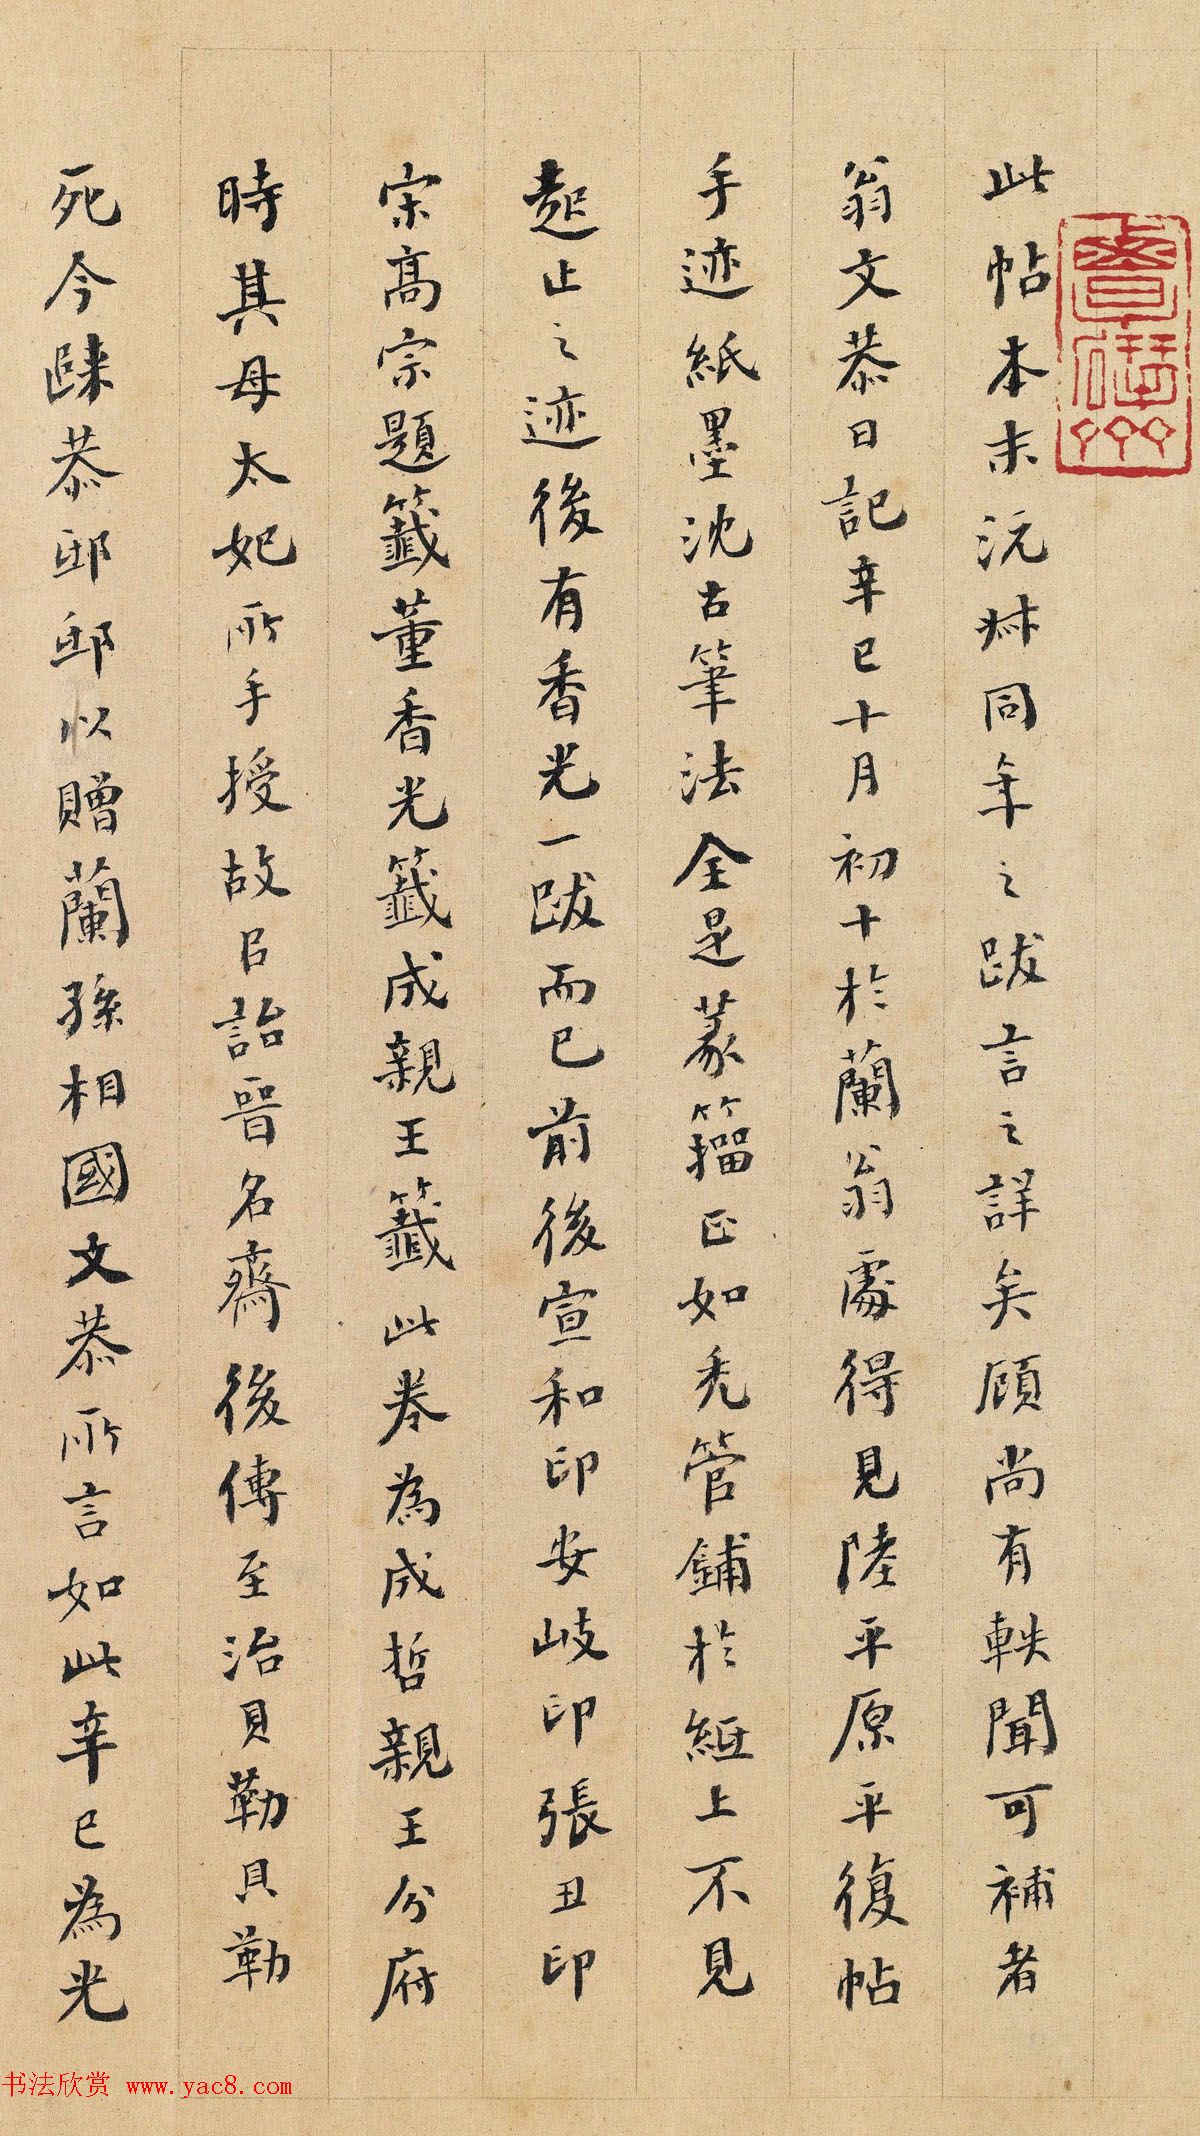 此帖本末沅尗同年之跋言之詳矣顧尚有軼聞可補者
翁文恭日記辛巳十月初十於蘭翁處得見陸平原平復帖
手迹紙墨沈古筆法全是篆籀正如禿管鋪於紙上不見
起止之迹後有香光一跋而已前後宣和印安岐印張丑印
宋高宗題籤董香光籤成親王籤此卷為成哲親王分府
時其母太妃所手授故㠯詒晉名齋後傳至治貝勒貝勒
死今歸恭邸邸以贈蘭孫相國文恭所言如此辛巳為光
书法欣赏 www.yac8.com